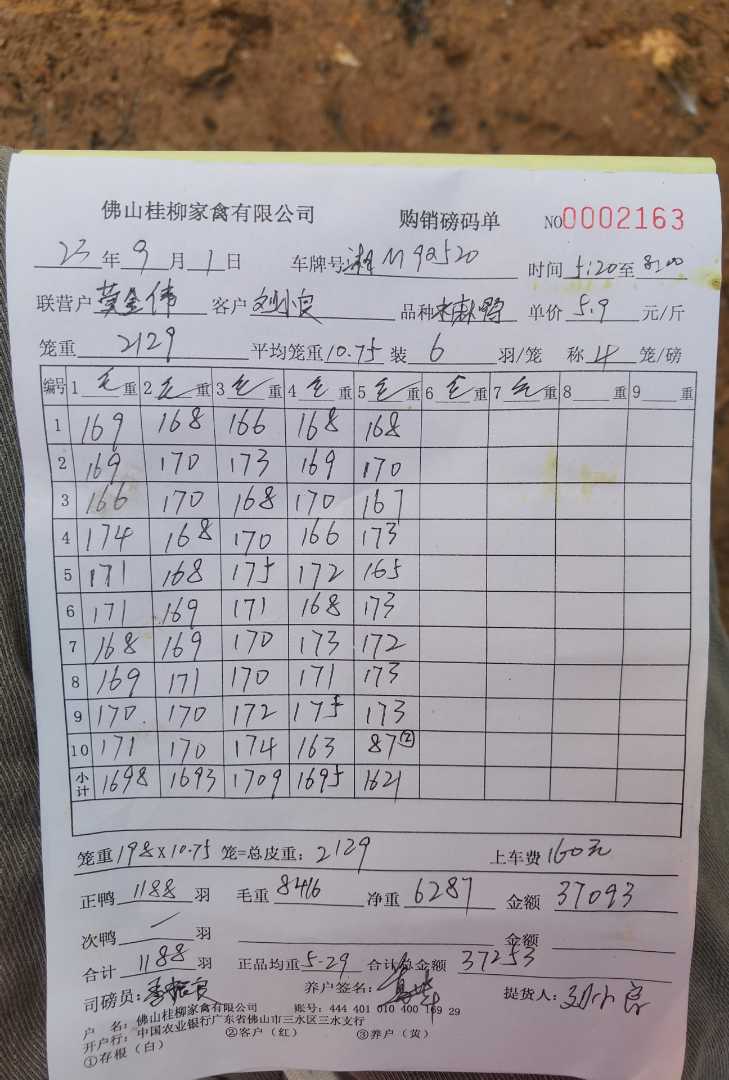 佛山桂柳家禽有限公司 购销磅码单 NO0002163
23年9月1日 车牌号湘M92520 时间5:20至8:00
联营户黄金伟 客户刘小良 品种 单价5.9元/斤
笼重2129 平均笼重10.75装6羽/笼 称4笼/磅
编号 1毛重 2毛重 3毛重 4毛重 5毛重 6毛重 7毛重 8重 9重
1 169 168 166 168 168
2 169 170 173 169 170
3 166 170 168 170 167
4 174 168 170 166 173
5 171 168 175 172 165
6 171 169 171 168 173
7 168 169 170 173 172
8 169 171 170 171 173
9 170 170 172 175 173
10 171 170 174 163 87②
小计 1698 1693 1709 1695 1621
笼重198X10.75笼=总皮重:2129 上车费160元
正鸭1188羽 毛重8416 净重6287 金额37093
次鸭/羽 金额
合计1188羽 正品均重5.29 合计总金额37253
司磅员: 养户签名: 提货人:刘小良
户 名:佛山桂柳家禽有限公司 账号:444 401 010 400 169 29
开户行:中国农业银行广东省佛山市三水区三水支行
①存根(白) ②客户(红) ③养户(黄)